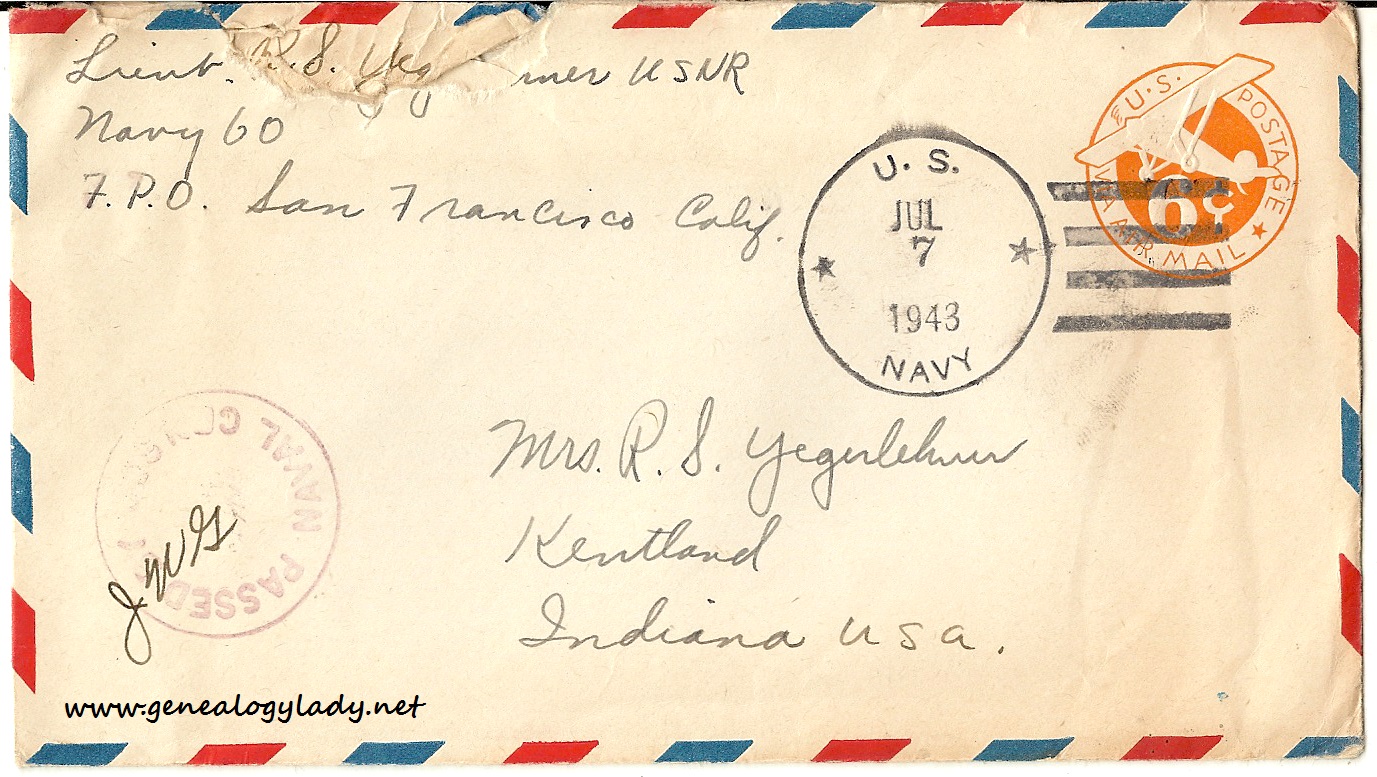 Lieut. R. S. Yeg mer USNR
Navy 60
F.P.O. San Francisco Calif.
U.S. POSTAGE
6¢
VIA AIR MAIL
U. S.
JUL
7
1943
NAVY
Mrs. R. S. Yegerlehner
Kentland
Indiana USA.
PASSED NAVAL
J W G
www.genealogylady.net